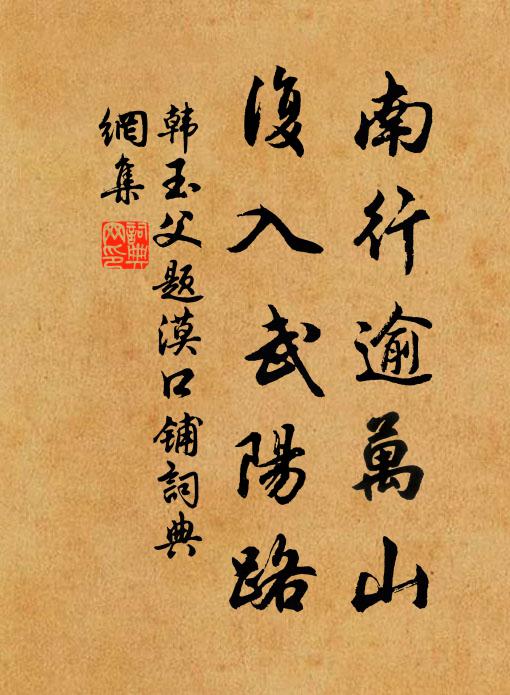 南行逾萬山
復入武陽路
韩玉父题漠口铺詞典
網集
詞典網印